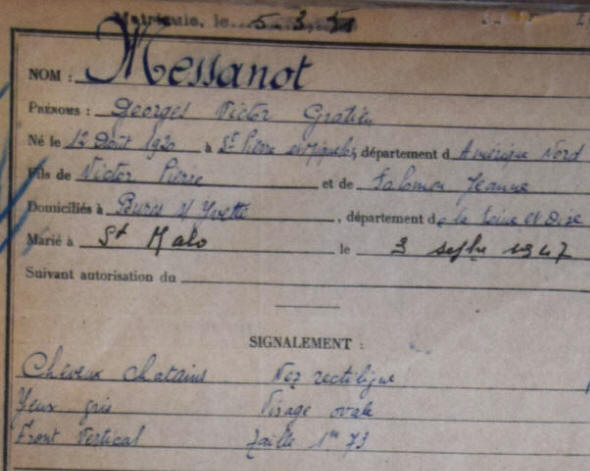 Matricule, le 5.3.51
NOM : Messanot
PRÉNOMS : Georges Victor Gratien
Né le 12 Août 1920 à St Pierre et Miquelon, département d Amérique Nord
Fils de Victor Pierre et de Salomon Jeanne
Domiciliés à Bures s/ Yvette, département d e la Seine et Oise
Marié à St Malo le 3 septbre 1947
Suivant autorisation du
SIGNALEMENT :
Cheveux chatains Nez rectiligne
Yeux gris Visage ovale
Front Vertical Taille 1m 73